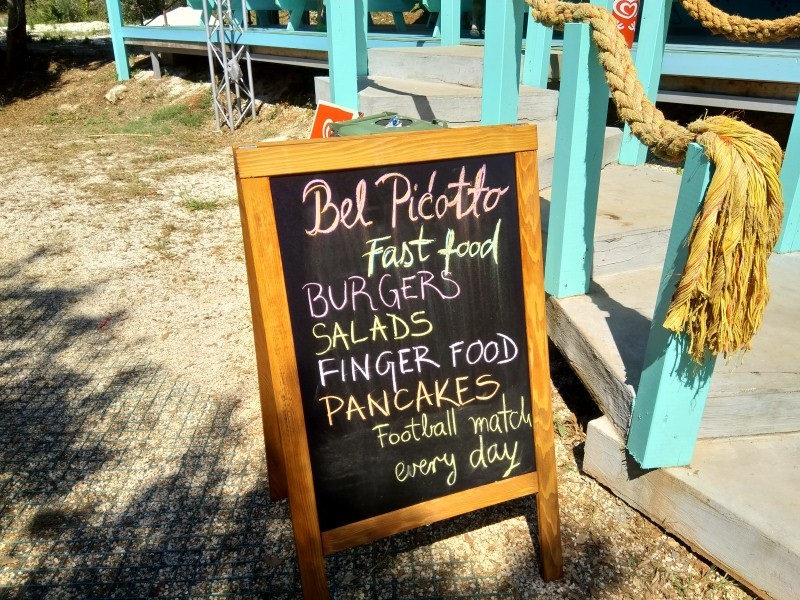 Bel Pićotto
Fast food
BURGERS
SALADS
FINGER FOOD
PANCAKES
Football match
every day